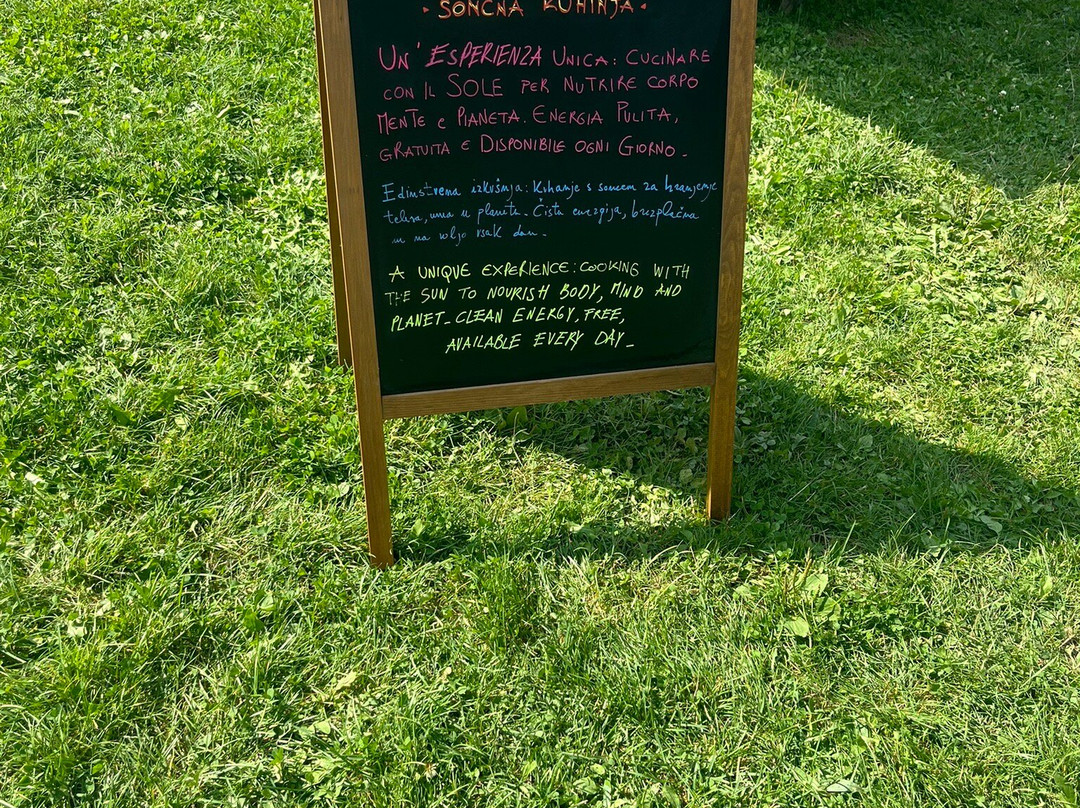 · SONČNA KUHINJA ·
UN' ESPERIENZA UNICA: CUCINARE
CON IL SOLE PER NUTRIRE CORPO
MENTE e PIANETA. ENERGIA PULITA,
GRATUITA E DISPONIBILE OGNI GIORNO.
Edinstvena izkušnja: Kuhanje s soncem za hranjenje
telesa, uma in planeta. Čista energija, brezplačna
in na voljo vsak dan.
A UNIQUE EXPERIENCE: COOKING WITH
THE SUN TO NOURISH BODY, MIND AND
PLANET_CLEAN ENERGY, FREE,
AVAILABLE EVERY DAY_